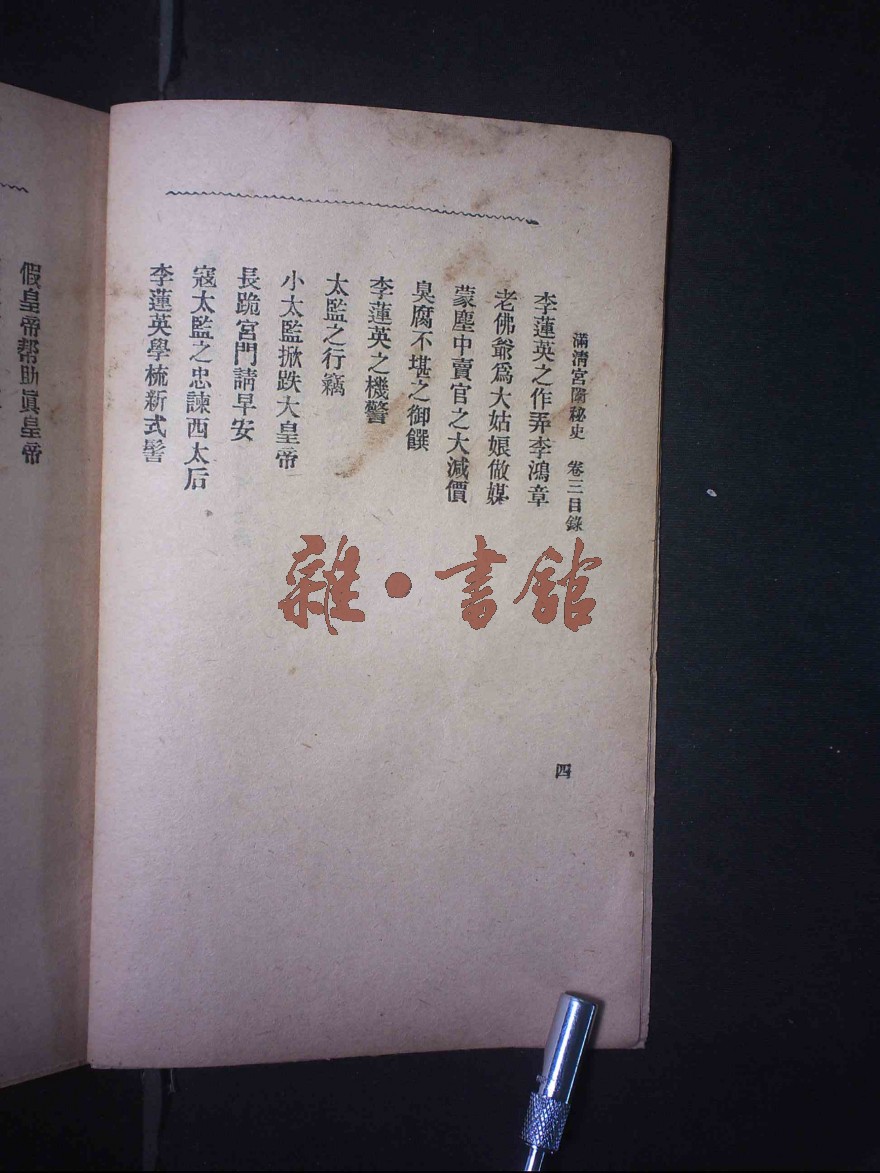 滿清宮闈秘史　卷三目錄
李蓮英之作弄李鴻章
老佛爺爲大姑娘做媒
蒙塵中賣官之大減價
臭腐不堪之御饌
李蓮英之機警
太監之行竊
小太監掀跌大皇帝
長跪宮門請早安
寇太監之忠諫西太后
李蓮英學梳新式髻
四
假皇帝幫助眞皇帝
雜·書館